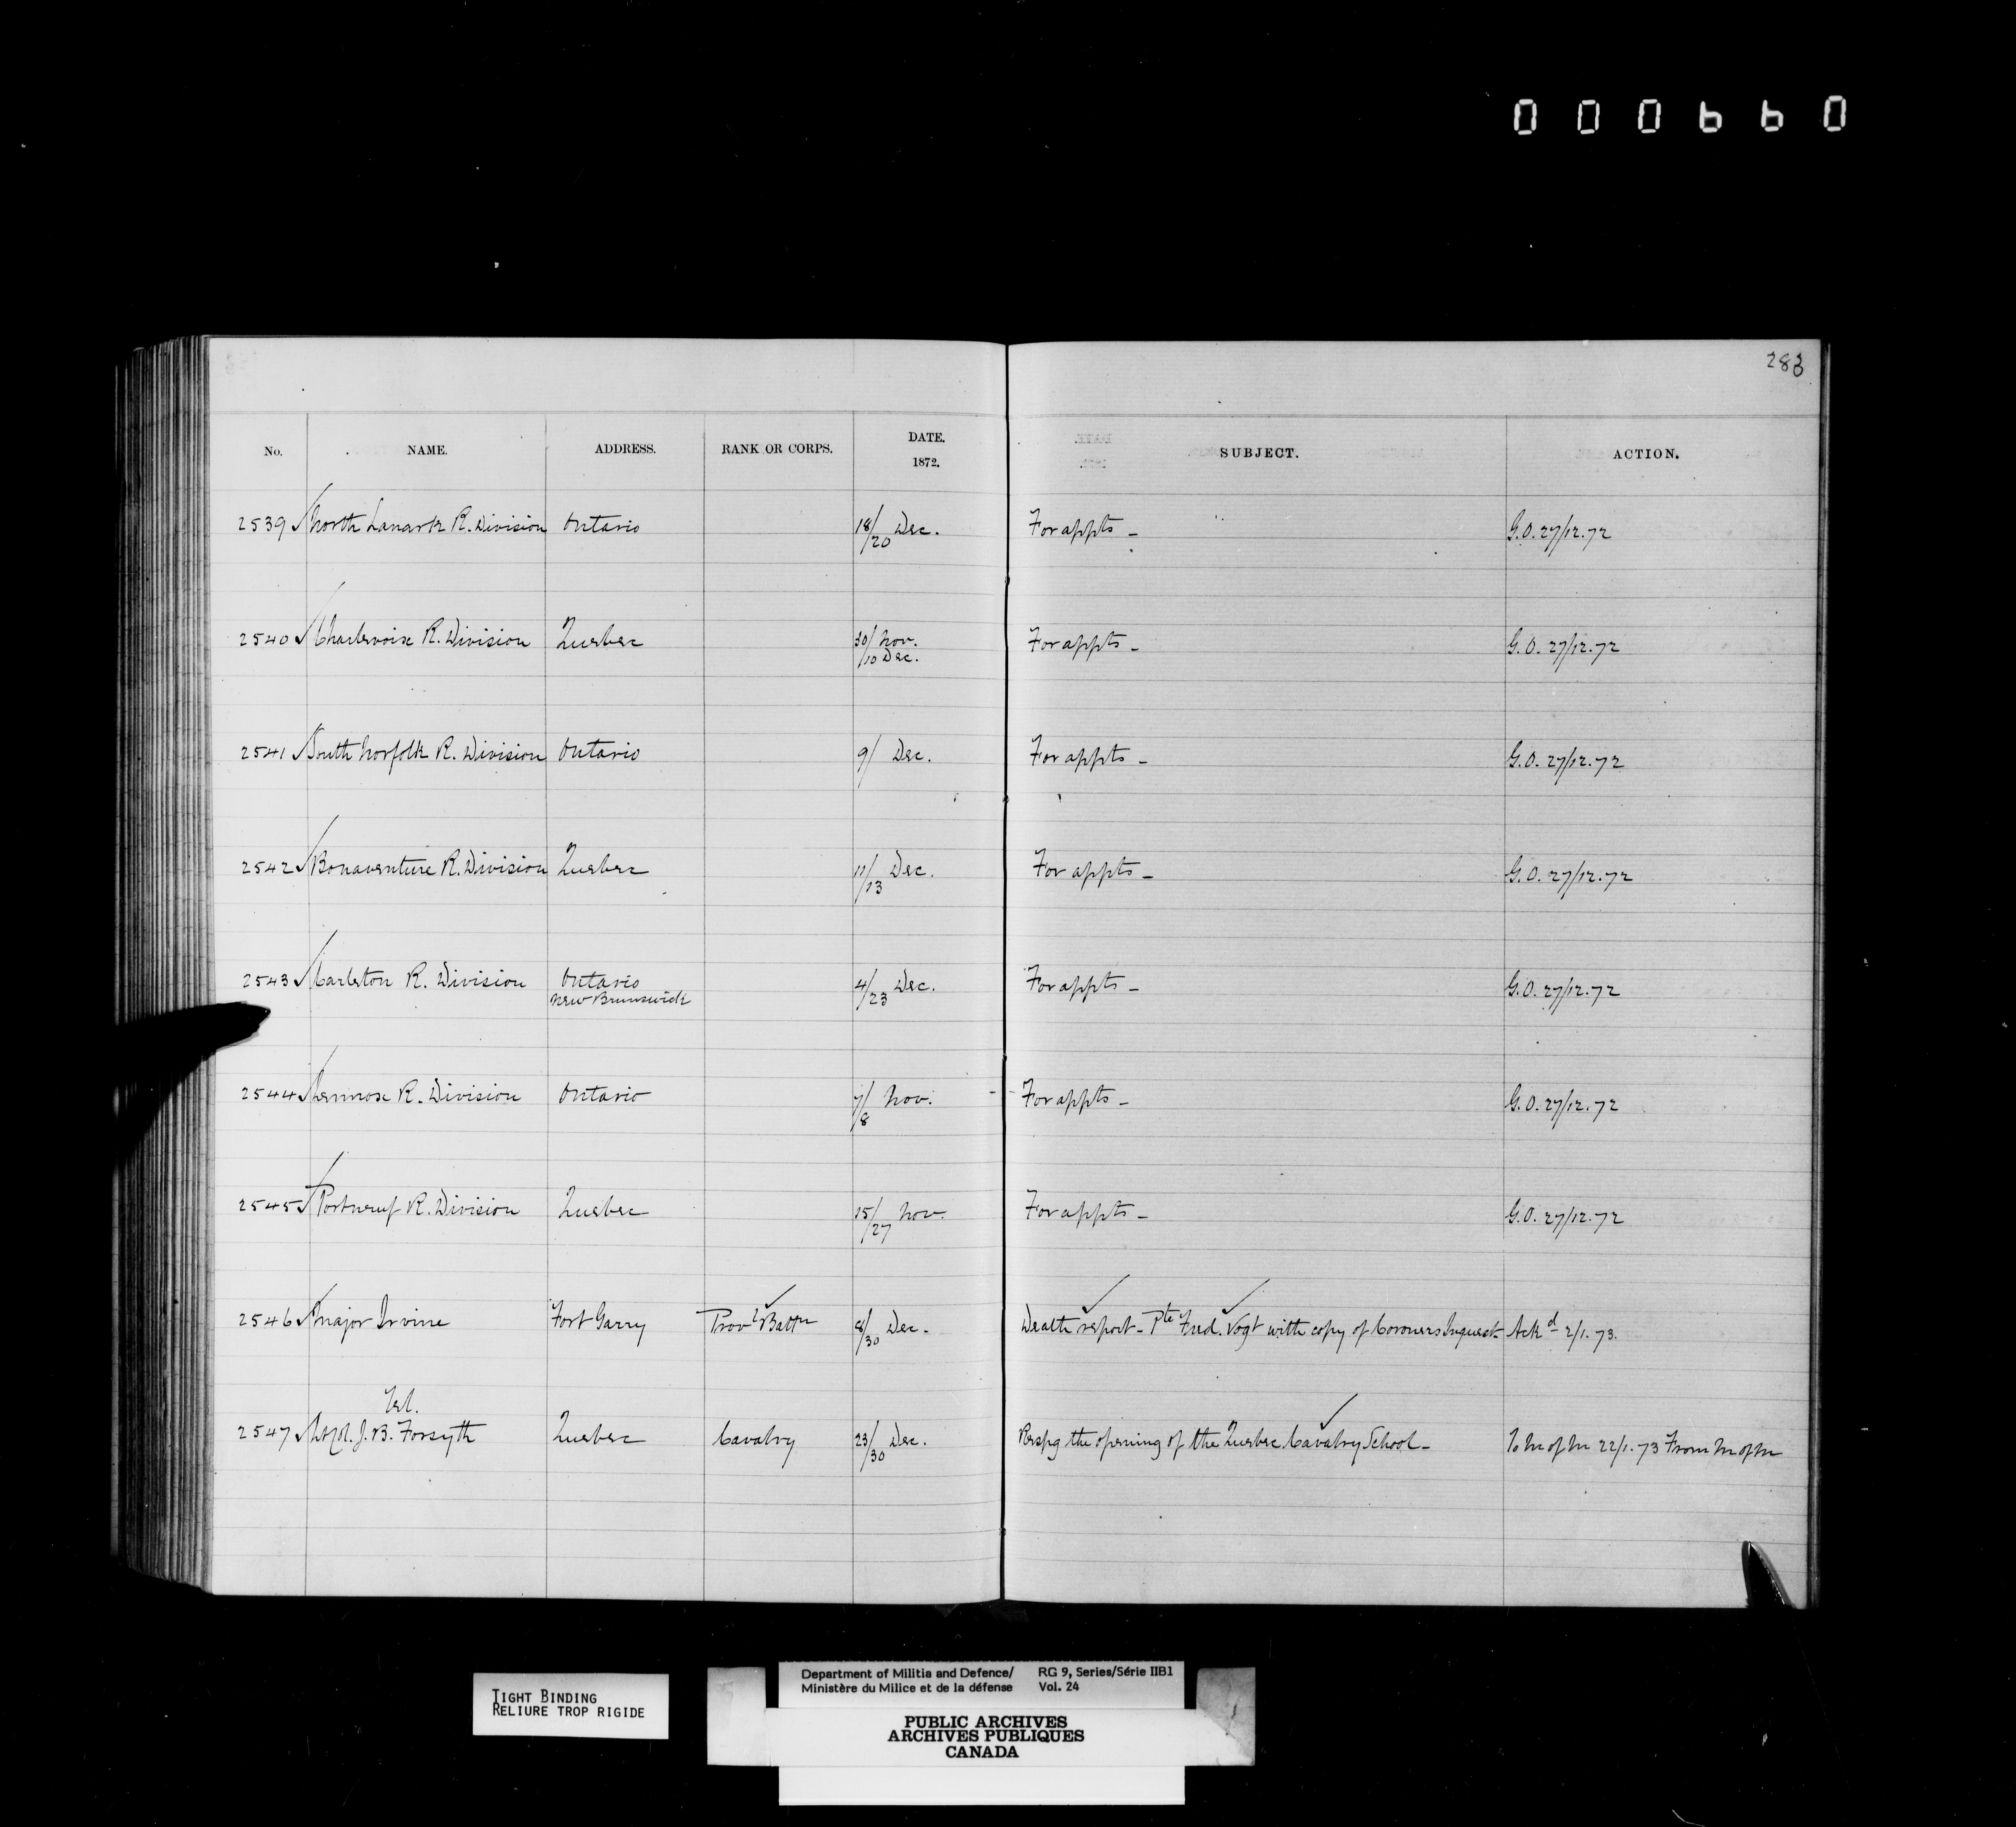 000660
283
No. NAME. ADDRESS. RANK OR CORPS. DATE. 1872. SUBJECT. ACTION.
2539 North Lanark R. Division Ontario 18/20 Dec. For appts - G.O. 27/12.72
2540 Charlevoix R. Division Quebec 30/ Nov. /10 Dec. For appts - G.O. 27/12.72
2541 South Norfolk R. Division Ontario 9/ Dec. For appts - G.O. 27/12.72
2542 Bonaventure R. Division Quebec 11/13 Dec. For appts - G.O. 27/12.72
2543 Carleton R. Division Ontario 4/23 Dec. For appts - G.O. 27/12.72
New Brunswick
2544 Lennox R. Division Ontario 7/8 Nov. For appts - G.O. 27/12.72
2545 Portneuf R. Division Quebec 15/27 Nov. For appts - G.O. 27/12.72
2546 Major Irvine Fort Garry Provl Battn 8/30 Dec. Death report - Pte Fred. Vogt with copy of Coroners Inquest - Ackd 2/1.73.
Tel.
2547 Lt Col. J. B. Forsyth Quebec Cavalry 23/30 Dec. Respg the opening of the Quebec Cavalry School - To M of M 22/1.73 From M of M
TIGHT BINDING
RELIURE TROP RIGIDE
Department of Militia and Defence/ RG 9, Series/Série IIB1
Ministère du Milice et de la défense Vol. 24
PUBLIC ARCHIVES
ARCHIVES PUBLIQUES
CANADA